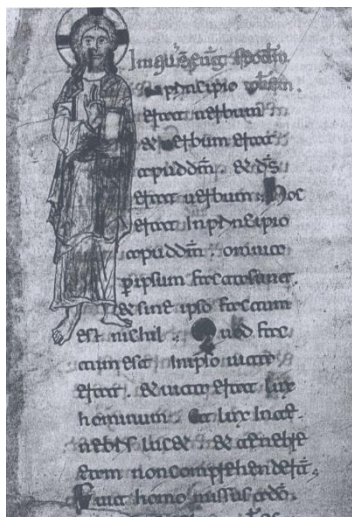 In principio
erat uerbum
& uerbum erat
apud dm̄. & ds̄
erat uerbum. Hoc
erat inprincipio
apud dm̄. omnia
p̄ ipsum facta sunt
& sine ipso factum
est nichil. Quod fac
tum est Inipso uita
erat. & uita erat lux
hominum. Et lux In te
nebris luc& & tenebre
eam non comprehenderūt.
Fuit homo missus ado.